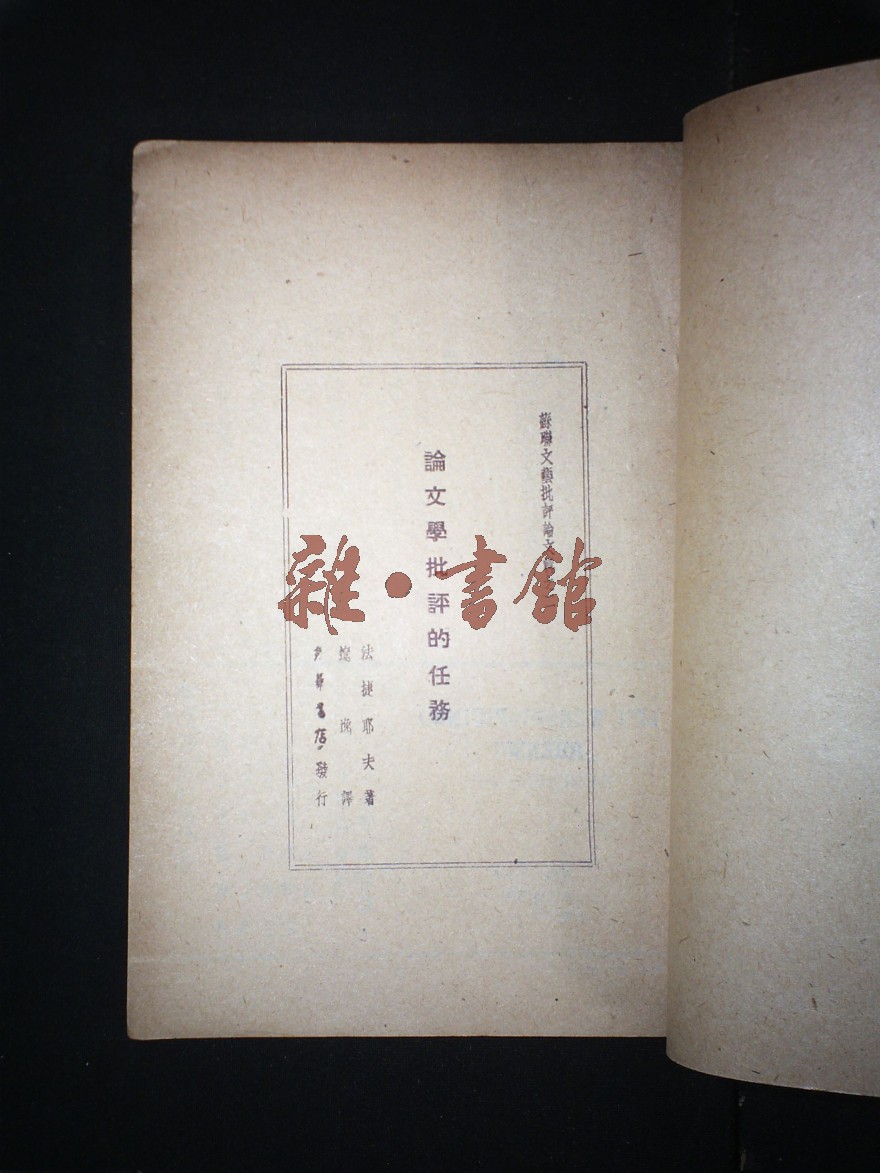 蘇聯文藝批評論文
論文學批評的任務
法捷耶夫著
逸譯
書店發行
雜·書館